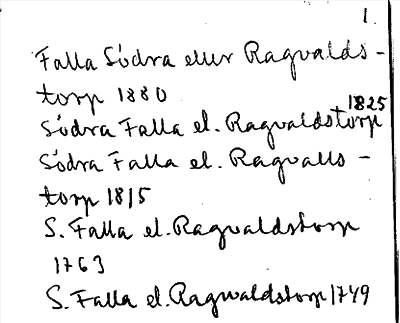 1.
Falla Södra eller Ragvalds-
torp 1880
Södra Falla el. Ragvaldstorp 1825
Södra Falla el. Ragvalls-
torp 1815
S. Falla el. Ragvaldstorp
1763
S. Falla el. Ragwaldstorp 1749